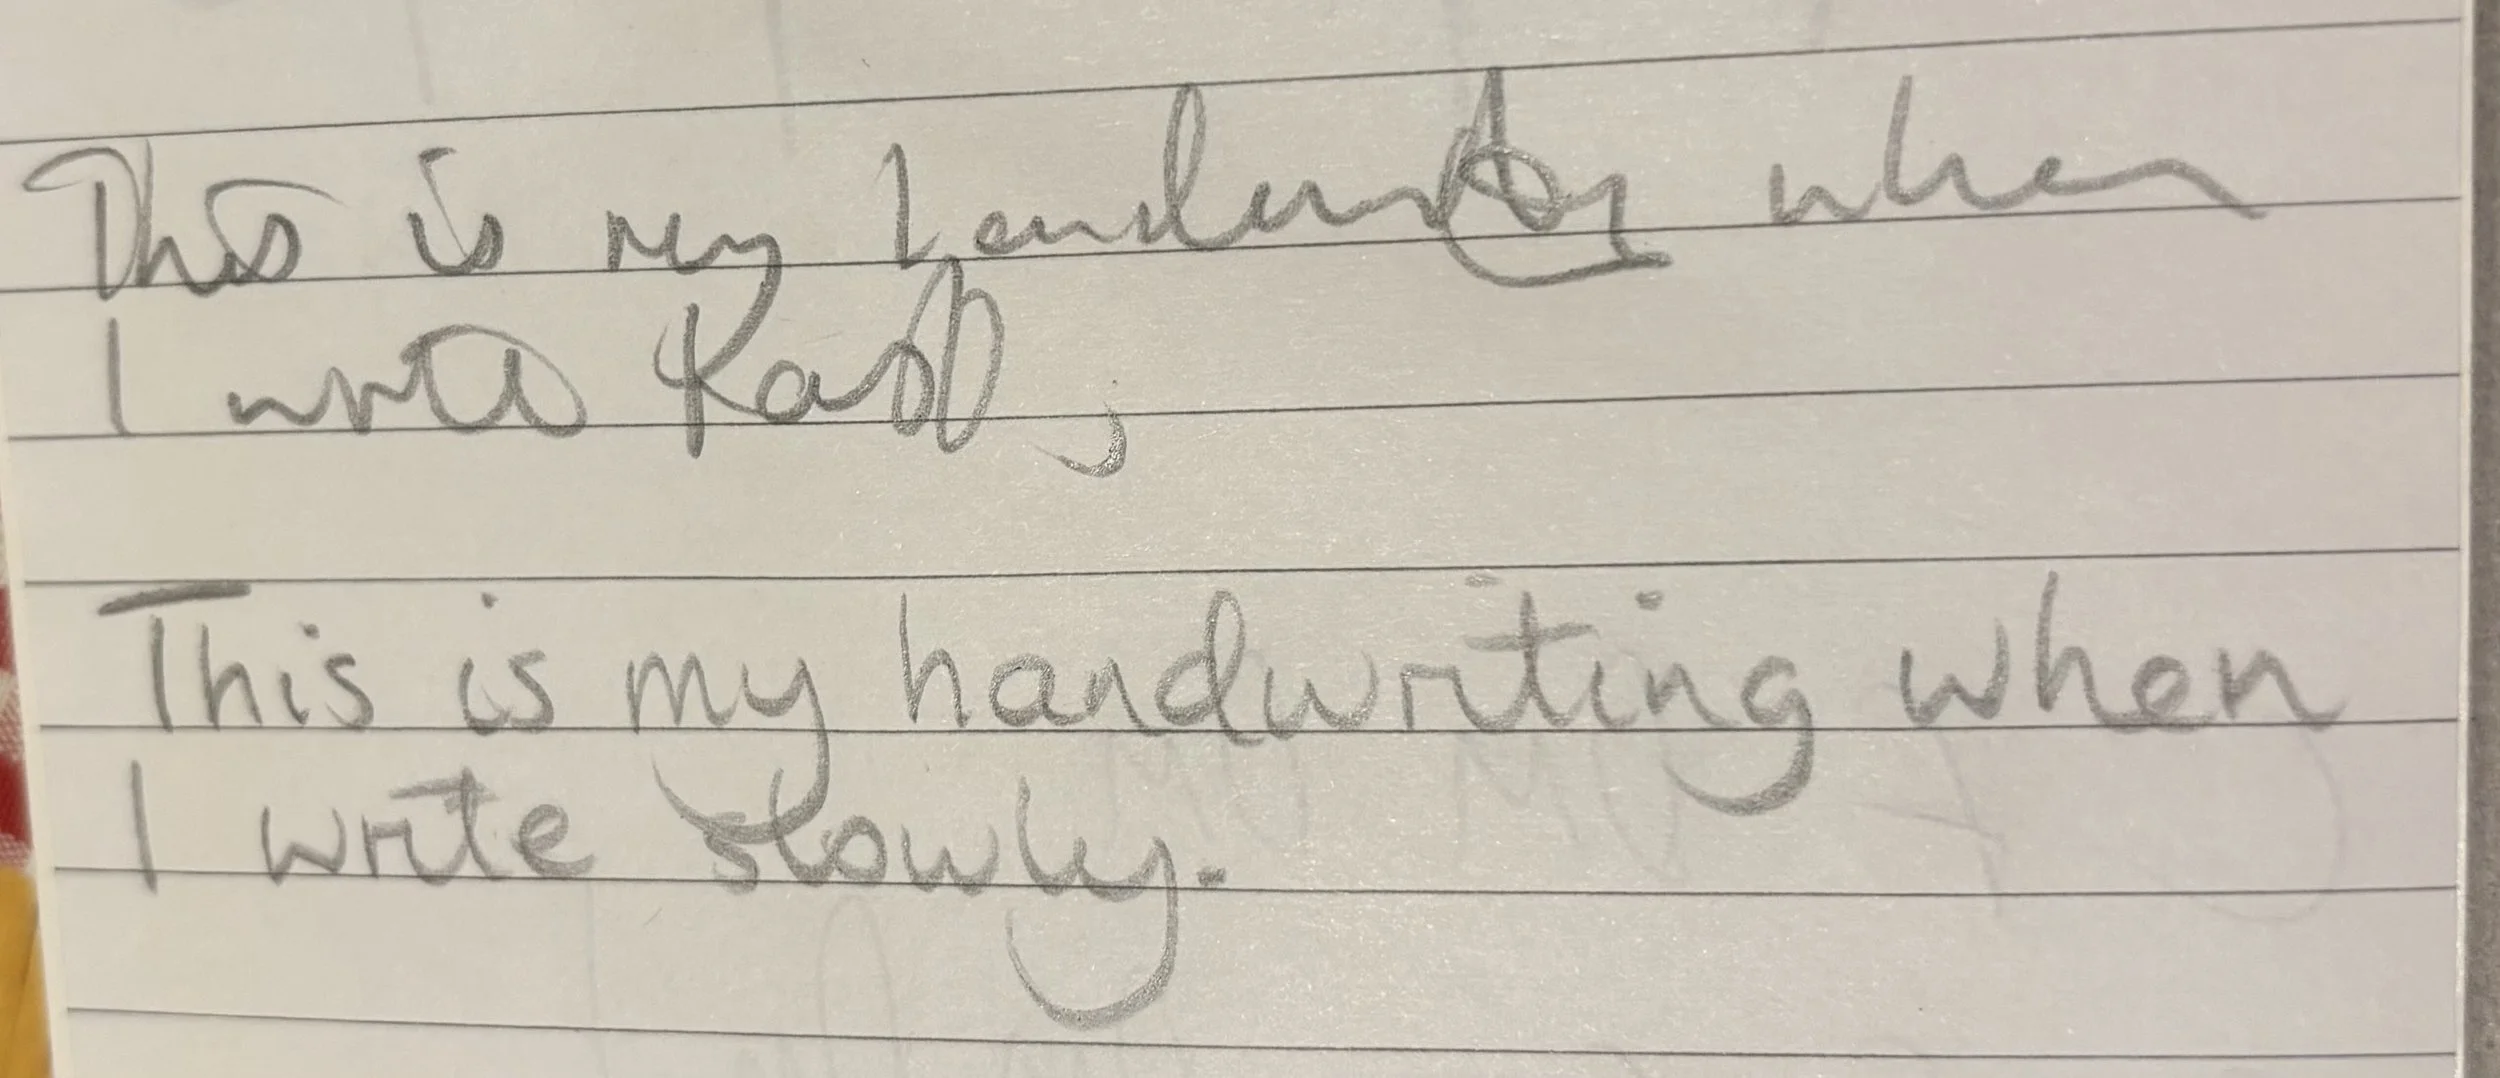 This is my handwriting when
I write fast,
This is my handwriting when
I write slowly.